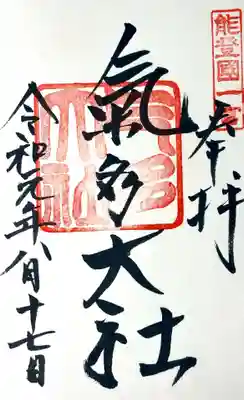 能登國一宮
奉拝
氣多大社
令和元年八月十七日